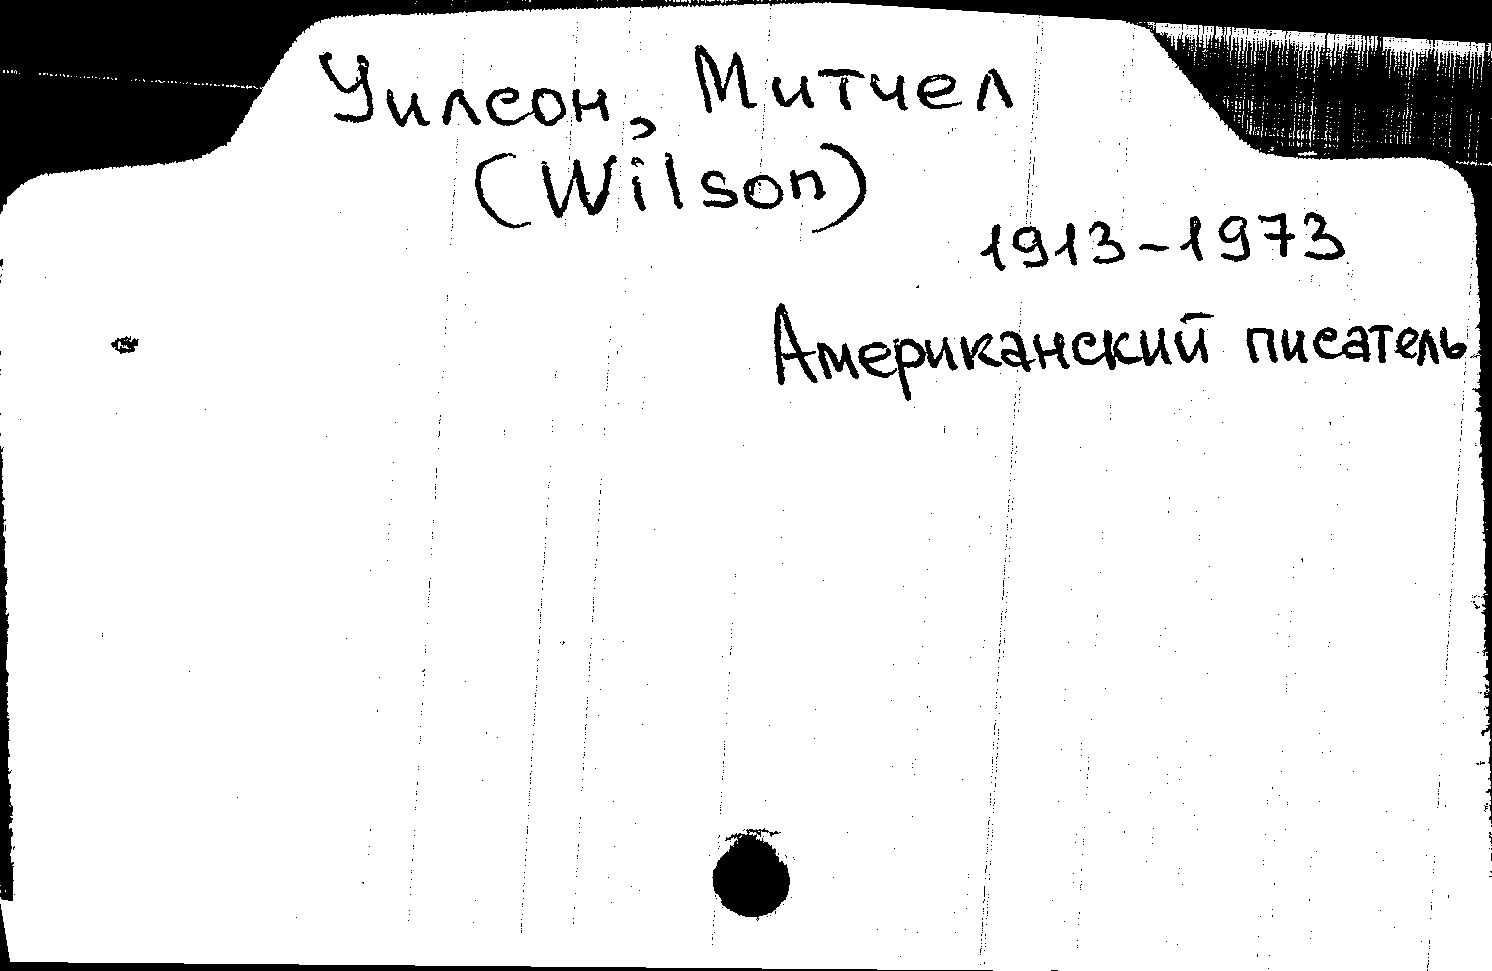 Уилсон, Митчел
(Wilson)
1913-1973
Американский писатель